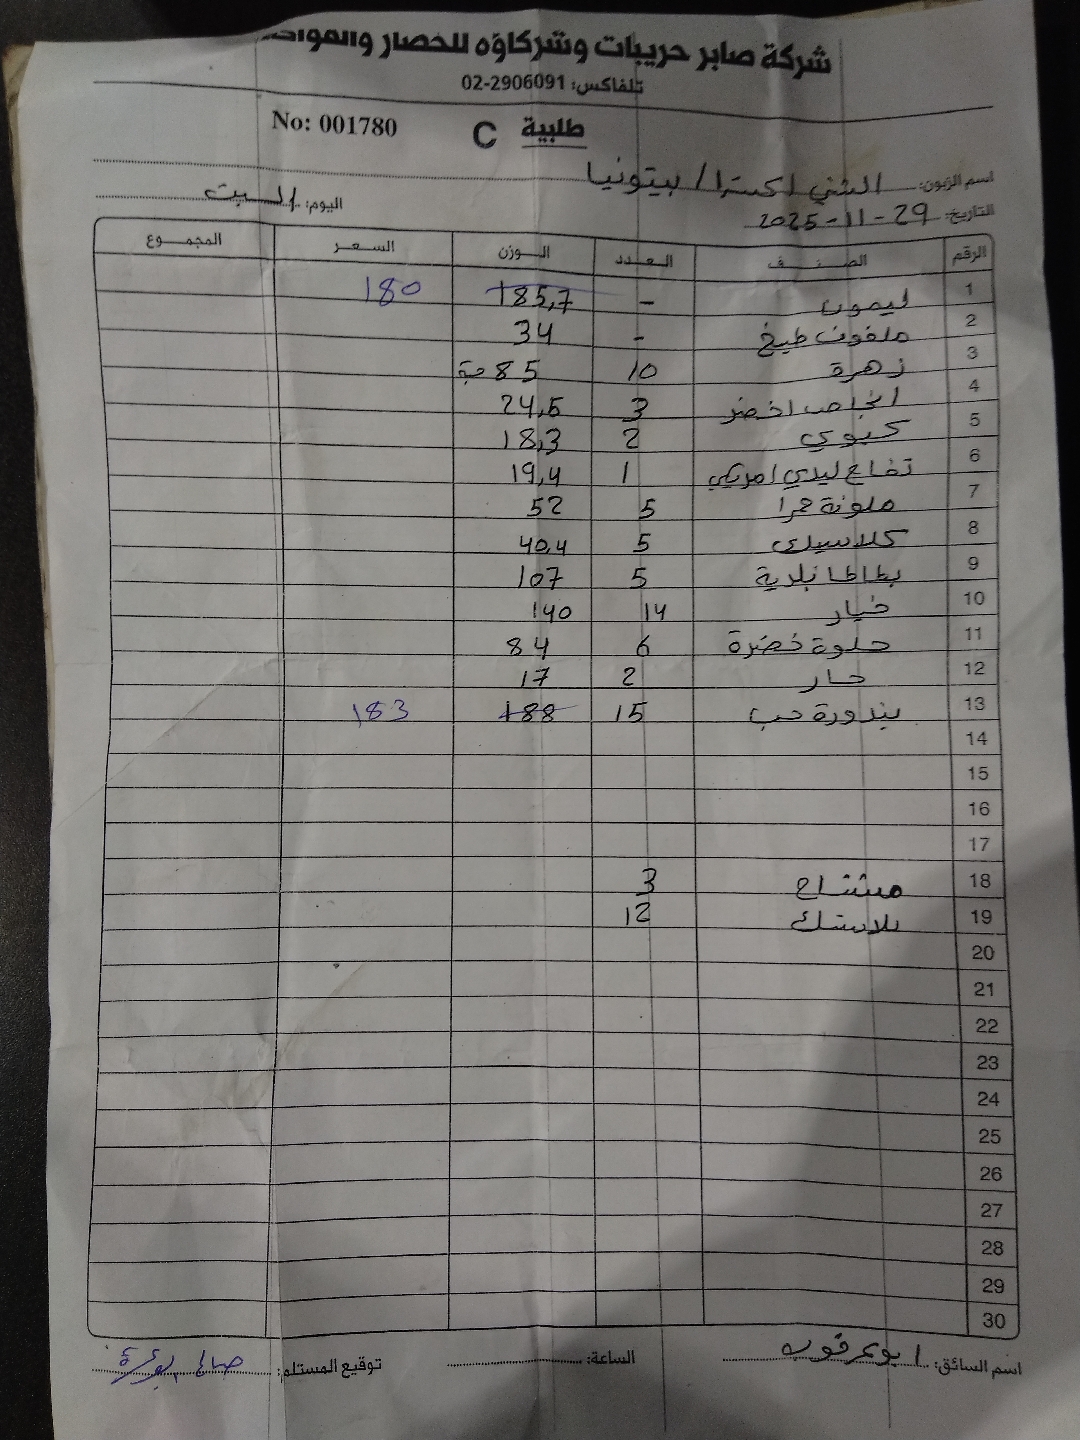 شركة صابر حريبات وشركاؤه للخضار والفواكه
تلفاكس: 02-2906091
No: 001780 C طلبية
اسم الزبون: الشني اكسترا / بيتونيا
اليوم: السبت
التاريخ: 29-11-2025
الرقم الصنف العدد الوزن السعر المجموع
1 ليمون - 185,7 180
2 ملفوف طبخ - 34
3 زهرة 10 85 حبة
4 انجاص اخضر 3 24,5
5 كيوي 2 18,3
6 تفاح ليدي امريكي 1 19,4
7 ملونة حمرا 5 52
8 كلاسيك 5 40,4
9 بطاطا بلدية 5 107
10 خيار 14 140
11 حلوة خضرة 6 84
12 حار 2 17
13 بندورة حب 15 188 183
14
15
16
17
18 مشتاح 3
19 بلاستك 12
20
21
22
23
24
25
26
27
28
29
30
اسم السائق: الساعة: توقيع المستلم: